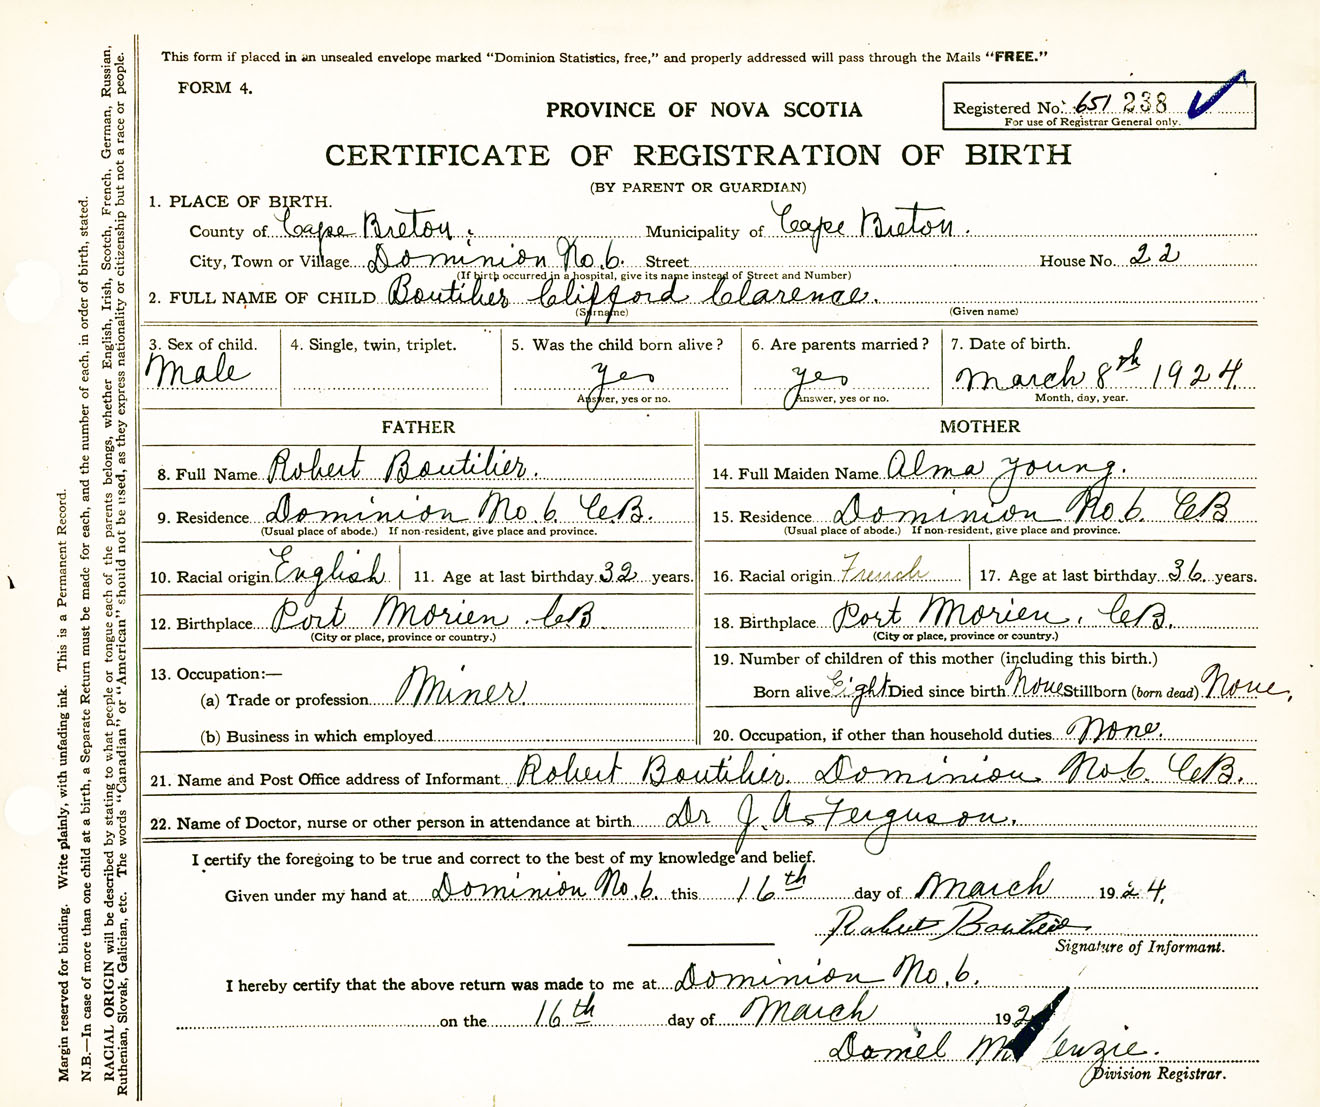 This form if placed in an unsealed envelope marked "Dominion Statistics, free," and properly addressed will pass through the Mails "FREE."
FORM 4.
PROVINCE OF NOVA SCOTIA
Registered No. 651 238
For use of Registrar General only.
CERTIFICATE OF REGISTRATION OF BIRTH
(BY PARENT OR GUARDIAN)
1. PLACE OF BIRTH.
County of Cape Breton. Municipality of Cape Breton.
City, Town or Village Dominion No. 6. Street House No. 22
(If birth occurred in a hospital, give its name instead of Street and Number)
2. FULL NAME OF CHILD Boutilier Clifford Clarence.
(Surname) (Given name)
3. Sex of child. 4. Single, twin, triplet. 5. Was the child born alive? 6. Are parents married? 7. Date of birth.
Male yes yes March 8th 1924.
Answer, yes or no. Answer, yes or no. Month, day, year.
FATHER MOTHER
8. Full Name Robert Boutilier. 14. Full Maiden Name Alma Young.
9. Residence Dominion No. 6. C.B. 15. Residence Dominion No. 6. CB
(Usual place of abode.) If non-resident, give place and province. (Usual place of abode.) If non-resident, give place and province.
10. Racial origin English 11. Age at last birthday 32 years. 16. Racial origin French 17. Age at last birthday 36 years.
12. Birthplace Port Morien. CB 18. Birthplace Port Morien, CB.
(City or place, province or country.) (City or place, province or country.)
13. Occupation:— 19. Number of children of this mother (including this birth.)
(a) Trade or profession Miner Born alive Eight Died since birth None Stillborn (born dead) None,
(b) Business in which employed 20. Occupation, if other than household duties None.
21. Name and Post Office address of Informant Robert Boutilier. Dominion No 6. CB.
22. Name of Doctor, nurse or other person in attendance at birth Dr J. A. Ferguson.
I certify the foregoing to be true and correct to the best of my knowledge and belief.
Given under my hand at Dominion No. 6. this 16th day of March 1924.
Robert Boutilier
Signature of Informant.
I hereby certify that the above return was made to me at Dominion No. 6.
on the 16th day of March 192
Daniel McKenzie.
Division Registrar.
Margin reserved for binding. Write plainly, with unfading ink. This is a Permanent Record.
N.B.—In case of more than one child at a birth, a Separate Return must be made for each, and the number of each, in order of birth, stated.
RACIAL ORIGIN will be described by stating to what people or tongue each of the parents belongs, whether English, Irish, Scotch, French, German, Russian,
Ruthenian, Slovak, Galician, etc. The words "Canadian" or "American" should not be used, as they express nationality or citizenship but not a race or people.